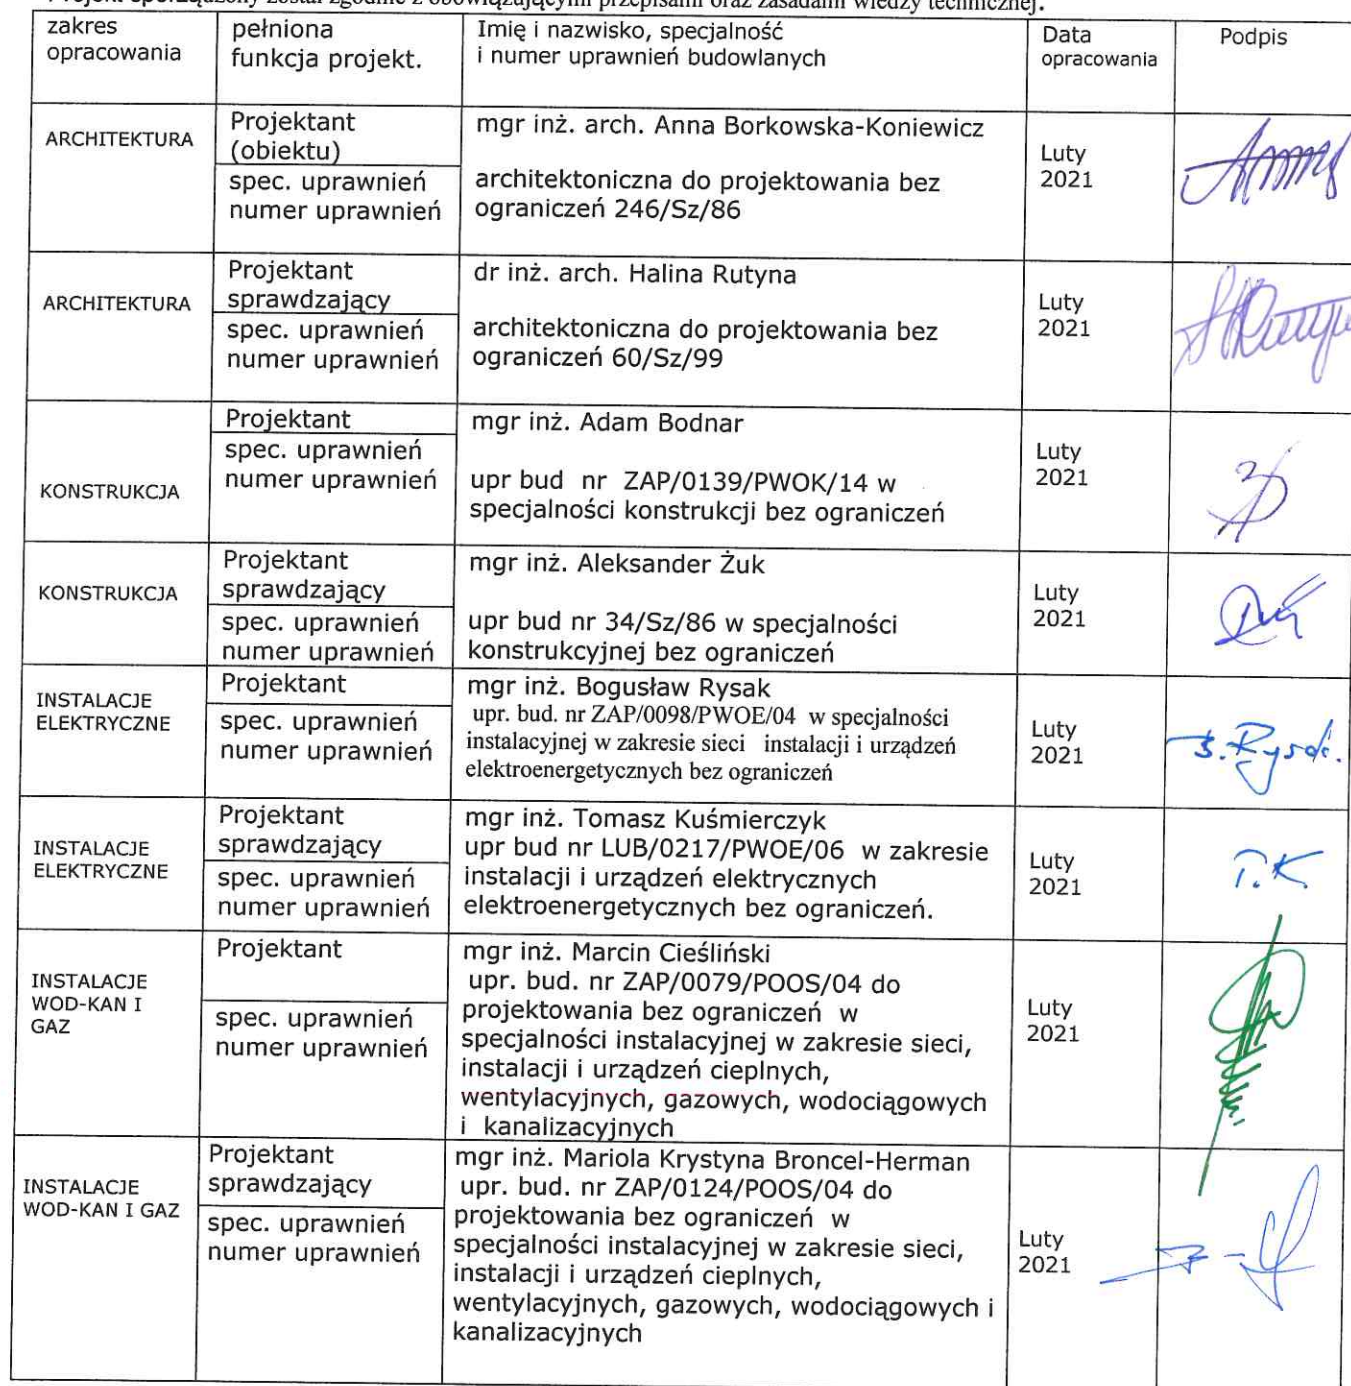 Projekt sporządzony został zgodnie z obowiązującymi przepisami oraz zasadami wiedzy technicznej.
zakres
opracowania
pełniona
funkcja projekt.
Imię i nazwisko, specjalność
i numer uprawnień budowlanych
Data
opracowania
Podpis
ARCHITEKTURA
Projektant
(obiektu)
spec. uprawnień
numer uprawnień
mgr inż. arch. Anna Borkowska-Koniewicz
architektoniczna do projektowania bez
ograniczeń 246/Sz/86
Luty
2021
ARCHITEKTURA
Projektant
sprawdzający
spec. uprawnień
numer uprawnień
dr inż. arch. Halina Rutyna
architektoniczna do projektowania bez
ograniczeń 60/Sz/99
Luty
2021
KONSTRUKCJA
Projektant
spec. uprawnień
numer uprawnień
mgr inż. Adam Bodnar
upr bud nr ZAP/0139/PWOK/14 w
specjalności konstrukcji bez ograniczeń
Luty
2021
KONSTRUKCJA
Projektant
sprawdzający
spec. uprawnień
numer uprawnień
mgr inż. Aleksander Żuk
upr bud nr 34/Sz/86 w specjalności
konstrukcyjnej bez ograniczeń
Luty
2021
INSTALACJE
ELEKTRYCZNE
Projektant
spec. uprawnień
numer uprawnień
mgr inż. Bogusław Rysak
upr. bud. nr ZAP/0098/PWOE/04 w specjalności
instalacyjnej w zakresie sieci instalacji i urządzeń
elektroenergetycznych bez ograniczeń
Luty
2021
INSTALACJE
ELEKTRYCZNE
Projektant
sprawdzający
spec. uprawnień
numer uprawnień
mgr inż. Tomasz Kuśmierczyk
upr bud nr LUB/0217/PWOE/06 w zakresie
instalacji i urządzeń elektrycznych
elektroenergetycznych bez ograniczeń.
Luty
2021
T.K
INSTALACJE
WOD-KAN I
GAZ
Projektant
spec. uprawnień
numer uprawnień
mgr inż. Marcin Cieśliński
upr. bud. nr ZAP/0079/POOS/04 do
projektowania bez ograniczeń w
specjalności instalacyjnej w zakresie sieci,
instalacji i urządzeń cieplnych,
wentylacyjnych, gazowych, wodociągowych
i kanalizacyjnych
Luty
2021
INSTALACJE
WOD-KAN I GAZ
Projektant
sprawdzający
spec. uprawnień
numer uprawnień
mgr inż. Mariola Krystyna Broncel-Herman
upr. bud. nr ZAP/0124/POOS/04 do
projektowania bez ograniczeń w
specjalności instalacyjnej w zakresie sieci,
instalacji i urządzeń cieplnych,
wentylacyjnych, gazowych, wodociągowych i
kanalizacyjnych
Luty
2021